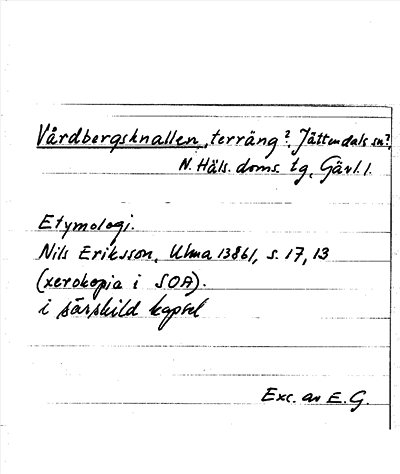 Vårdbergsknallen, terräng?, Jättendals sn?,
N. Häls. doms. tg, Gävl. l.
Etymologi.
Nils Eriksson, Ulma 13861, s. 17, 13
(xerokopia i SOA).
i särskild kapsel
Exc. av E. G.